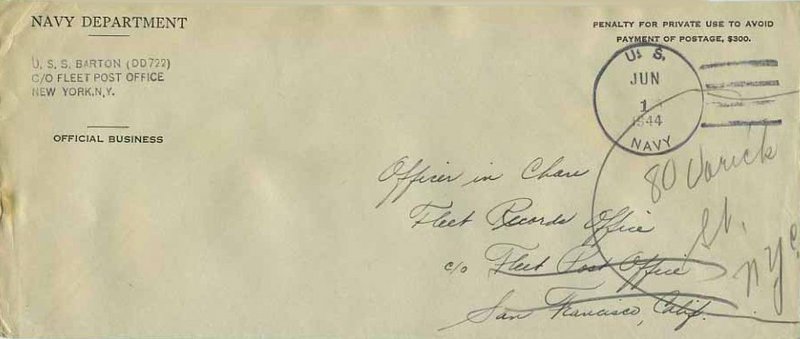 NAVY DEPARTMENT
U. S. S. BARTON (DD722)
C/O FLEET POST OFFICE
NEW YORK,N.Y.
OFFICIAL BUSINESS
PENALTY FOR PRIVATE USE TO AVOID
PAYMENT OF POSTAGE, $300.
U. S.
JUN
1
1944
NAVY
Officer in Chare
Fleet Records Office
c/o Fleet Post Office
San Francisco, Calif.
80 Varick
St.
NYC